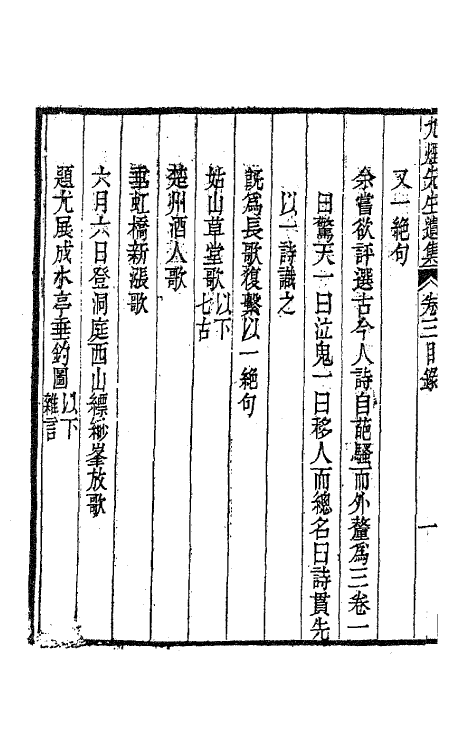 九煙先生遺集 卷三目錄 一
又一絕句
余嘗欲評選古今人詩自葩騷而外釐為三卷一
曰驚天一曰泣鬼一曰移人而總名曰詩貫先
以一詩識之
既為長歌復繫以一絕句
姑山草堂歌以下七古
楚州酒人歌
垂虹橋新漲歌
六月六日登洞庭西山縹緲峯放歌
題尤展成水亭垂釣圖以下雜言